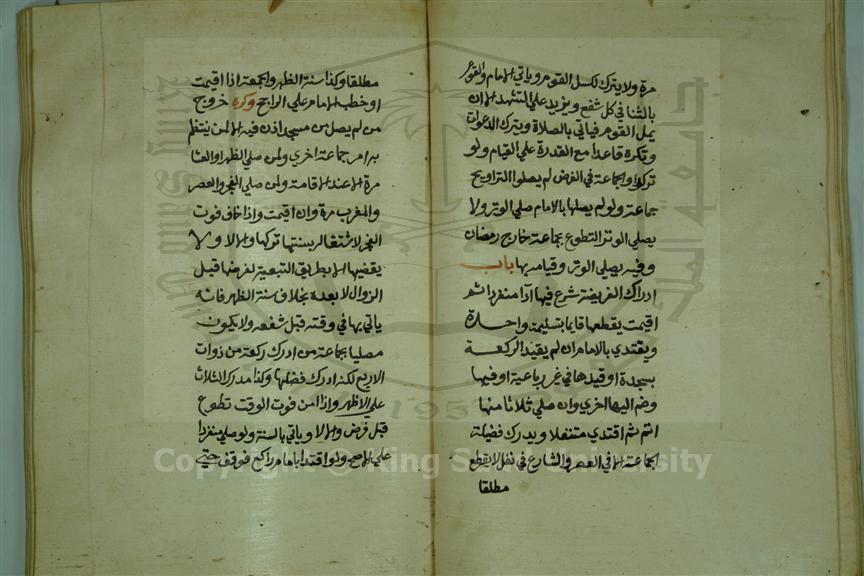 مرة ولا يترك لكسل القوم وياتي الامام والقوم
بالثنا في كل شفع ويزيد علي التشهد الا ان
يمل القوم فياتي بالصلاة ويترك الدعوات
وتكره قاعدا مع القدرة علي القيام ولو
تركوا والجماعة في الفرض لم يصلوا التراويح
جماعة ولو لم يصلها بالامام صلي الوتر ولا
يصلي الوتر التطوع بجماعة خارج رمضان
وفيه يصلي الوتر وقيامه بها باب
ادراك الفريضة شرع فيها اذا منفردا ثم
اقيمت يقطعها قايما بتسليمة واحدة
ويقتدي بالامام ان لم يقيد الركعة
بسجدة او قيدها في غير رباعية او فيها
وضم اليها اخري وان صلي ثلاثا منها
اتم ثم اقتدي متنفلا ويدرك فضيلة
الجماعة الا في العصر والشارع في نفل لا يقطع
مطلقا
مطلقا وكذا سنة الظهر والجمعة اذا اقيمت
او خطب الامام علي الراجح وكره خروج
من لم يصل من مسجد اذن فيه الا لمن ينتظم
به امر جماعة اخري ولمن صلي الظهر والعشا
مرة الا عند الاقامة ولمن صلي الفجر والعصر
والمغرب مرة وان اقيمت واذا خاف فوت
الفجر لاشتغاله بسنتها تركها والا لا ولا
يقضيها الا بطريق التبعية لفرضها قبل
الزوال لا بعده بخلاف سنة الظهر فانه
ياتي بها في وقته قبل شفعه ولا يكون
مصليا بجماعة من ادرك ركعة من ذوات
الاربع لكنه ادرك فضلها وكذا مدرك الثلاث
علي الاظهر واذا امن فوت الوقت تطوع
قبل فرض والا لا وياتي بالسنة ولو صلي منفردا
علي الاصح ولو اقتدا بامام راكع فوقف حتي
جامعة الملك سعود
1957
Copyright © King Saud University